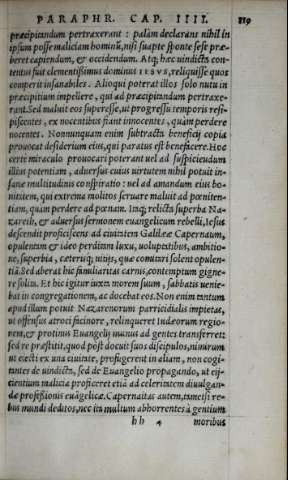 PARAPHR. CAP. IIII. 819
præcipitandum pertraxerant: palàm declarans nihil in
ipsum posse maliciam hominũ, nisi suapte spõnte sese præ-
beret capiendum, & occidendum. Atq; hæc uindicta con-
tentus fuit clementissimus dominus IESVS, reliquisse quos
comperit insanabiles. Alioqui poterat illos solo nutu in
præcipitium impellere, qui ad præcipitandum pertraxe-
rant. Sed maluit eos superesse, ut progressu temporis resi-
piscentes, ex nocentibus fiant innocentes, quàm perdere
nocentes. Nonnunquam enim subtractũ beneficij copia
prouocat desiderium eius, qui paratus est benefacere. Hoc
certè miraculo prouocari poterant uel ad suspiciendum
illius potentiam, aduersus cuius uirtutem nihil potuit in-
sanæ multitudinis conspiratio: uel ad amandum eius bo-
nitatem, qui extrema molitos seruare maluit ad pœniten-
tiam, quàm perdere ad pœnam. Itaq; relicta superba Na-
zareth, & aduersus sermonem euangelicum rebelli, Iesus
descendit proficiscens ad ciuitatem Galilææ Capernaum,
opulentam & ideo perditam luxu, uoluptatibus, ambitio-
ne, superbia, cæterisq; uitijs, quæ comitari solent opulen-
tiã. Sed aberat hic familiaritas carnis, contemptum signe-
re solita. Et hic igitur iuxta morem suum, sabbatis uenie-
bat in congregationem, ac docebat eos. Non enim tantum
apud illum potuit Nazarenorum parricidialis impietas,
ut offensus atroci facinore, relinqueret Iudæorum regio-
nem, & protinus Euangelij munus ad gentes transferret:
sed re præstitit, quod pòst docuit suos discipulos, nimirum
ut eiecti ex una ciuitate, profugerent in aliam, non cogi-
tantes de uindicta, sed de Euangelio propagando, ut eij-
cientium malicia proficeret etiã ad celeritatem diuulgan-
dæ professionis euãgelicæ. Capernaitas autem, tametsi re-
bus mundi deditos, nec ita multum abhorrentes à gentium
hh 4 moribus